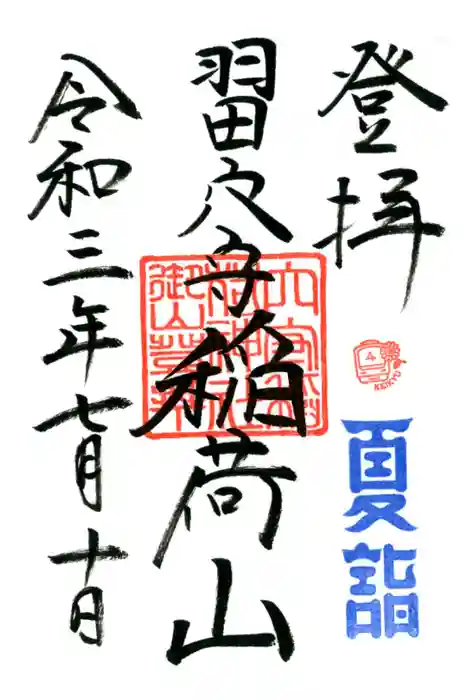 登拝
4
KEIKYU
夏詣
羽田穴守稲荷山
令和三年七月十日